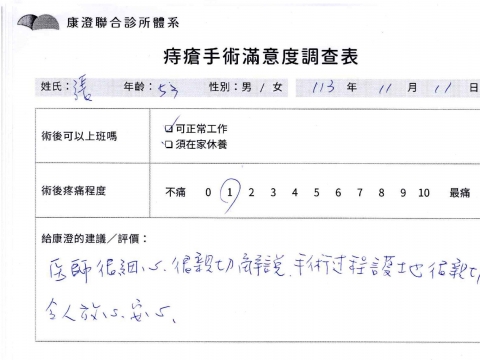 康澄聯合診所體系
痔瘡手術滿意度調查表
姓氏：張 年齡：53 性別：男／女 113 年 11 月 11 日
術後可以上班嗎
☑可正常工作
☐須在家休養
術後疼痛程度 不痛 0 1 2 3 4 5 6 7 8 9 10 最痛
給康澄的建議／評價：
医師很細心、很親切解說、手術过程護士也很親切
令人放心安心、